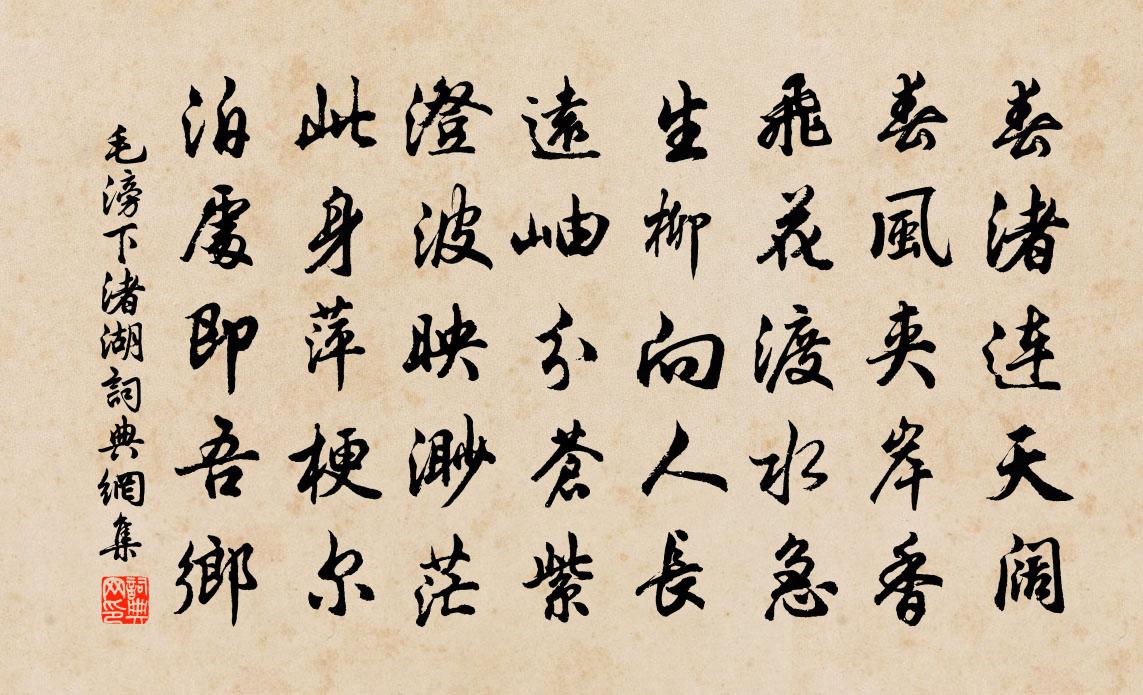 春渚連天阔
春風夹岸香
飛花渡水急
生柳向人長
遠岫分蒼紫
澄波映渺茫
此身萍梗尔
泊處即吾鄉
毛滂下渚湖詞典網集
詞典
网印